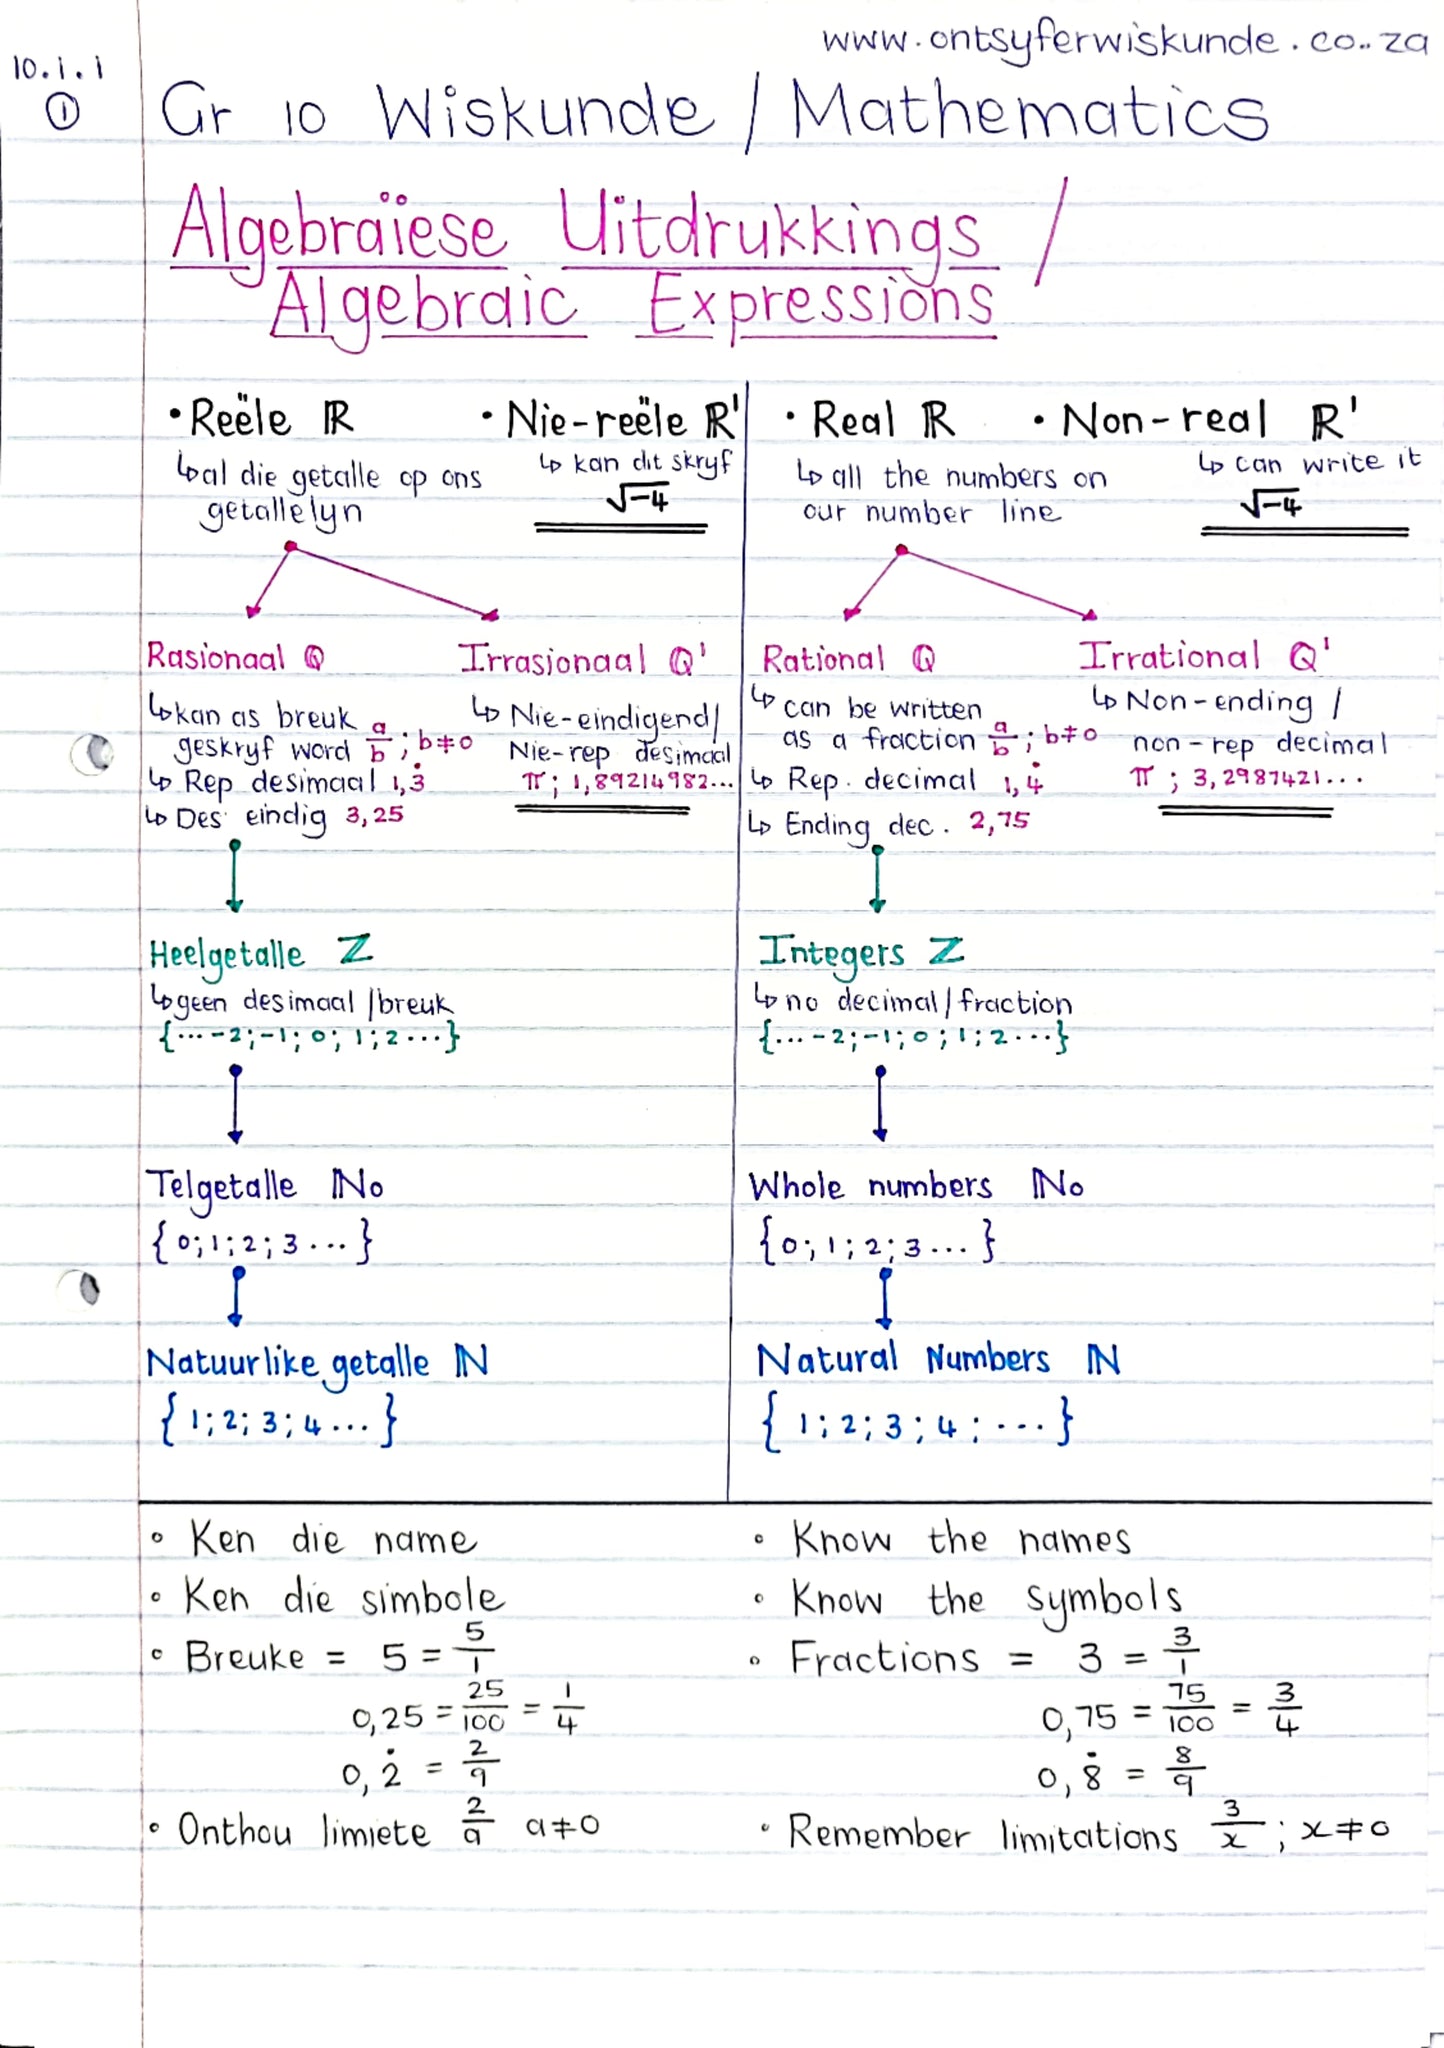 www.ontsyferwiskunde.co.za
10.1.1
①
Gr 10 Wiskunde / Mathematics
Algebraïese Uitdrukkings /
Algebraic Expressions
• Reële ℝ
• Nie-reële ℝ'
↳ al die getalle op ons
getallelyn
↳ kan dit skryf
√-4
Rasionaal ℚ
Irrasionaal ℚ'
↳ kan as breuk
geskryf word a/b ; b≠0
↳ Rep desimaal 1,3̇
↳ Des eindig 3,25
↳ Nie-eindigend/
Nie-rep desimaal
π ; 1,89214982...
Heelgetalle ℤ
↳ geen desimaal /breuk
{...-2;-1;0;1;2...}
Telgetalle ℕ₀
{0;1;2;3...}
Natuurlike getalle ℕ
{1;2;3;4...}
• Real ℝ
• Non-real ℝ'
↳ all the numbers on
our number line
↳ can write it
√-4
Rational ℚ
Irrational ℚ'
↳ can be written
as a fraction a/b ; b≠0
↳ Rep. decimal 1,4̇
↳ Ending dec. 2,75
↳ Non-ending /
non-rep decimal
π ; 3,2987421...
Integers ℤ
↳ no decimal/fraction
{...-2;-1;0;1;2...}
Whole numbers ℕ₀
{0;1;2;3...}
Natural Numbers ℕ
{1;2;3;4;...}
• Ken die name
• Ken die simbole
• Breuke = 5 = 5/1
0,25 = 25/100 = 1/4
0,2̇ = 2/9
• Onthou limiete 2/a a≠0
• Know the names
• Know the symbols
• Fractions = 3 = 3/1
0,75 = 75/100 = 3/4
0,8̇ = 8/9
• Remember limitations 3/x ; x≠0